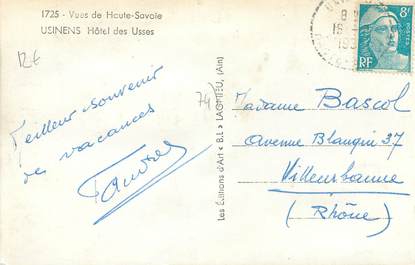 1725 - Vues de Haute-Savoie
USINENS Hôtel des Usses
12€
Meilleur souvenir
de vacances
74
Les Editions d'Art "B.L." LAGNIEU, (Ain)
8F
POSTES
RF
Madame Bascol
avenue Blanqui 37
Villeurbanne
(Rhône)